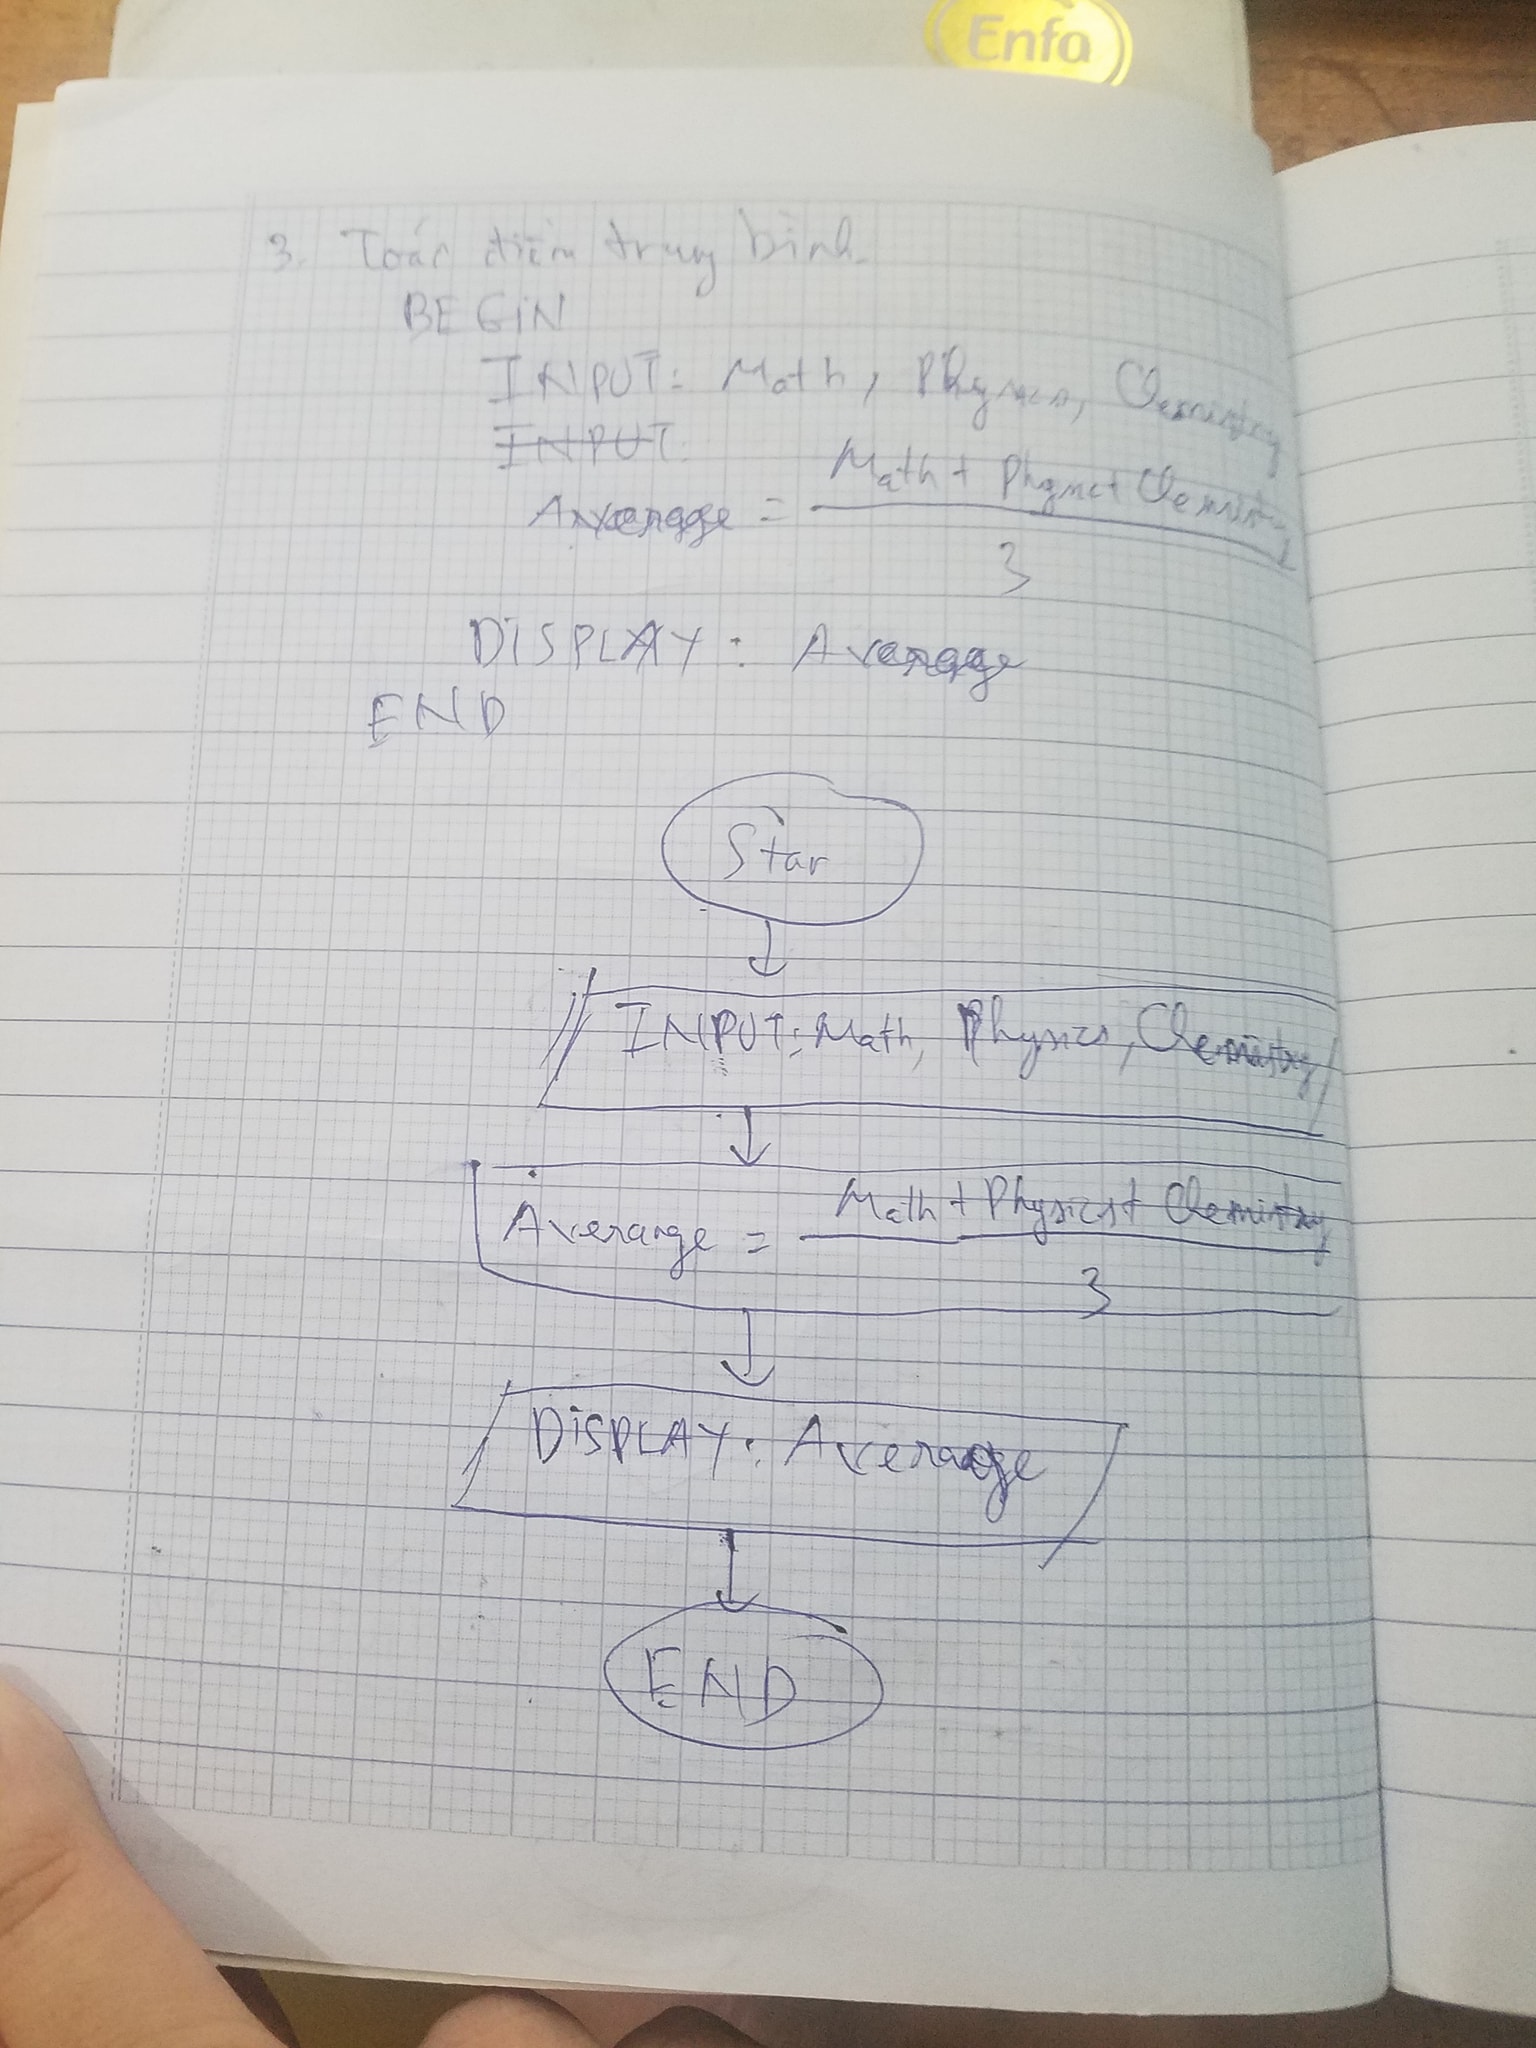 Enfa
3. Toán điểm trung bình.
BEGIN
INPUT: Math, Physics, Chemistry
INPUT:
Math + Physic + Chemistry
Averange =
3
DISPLAY: Averange
END
Star
INPUT: Math, Physics, Chemistry
Math + Physics + Chemistry
Averange =
3
DISPLAY: Averange
END